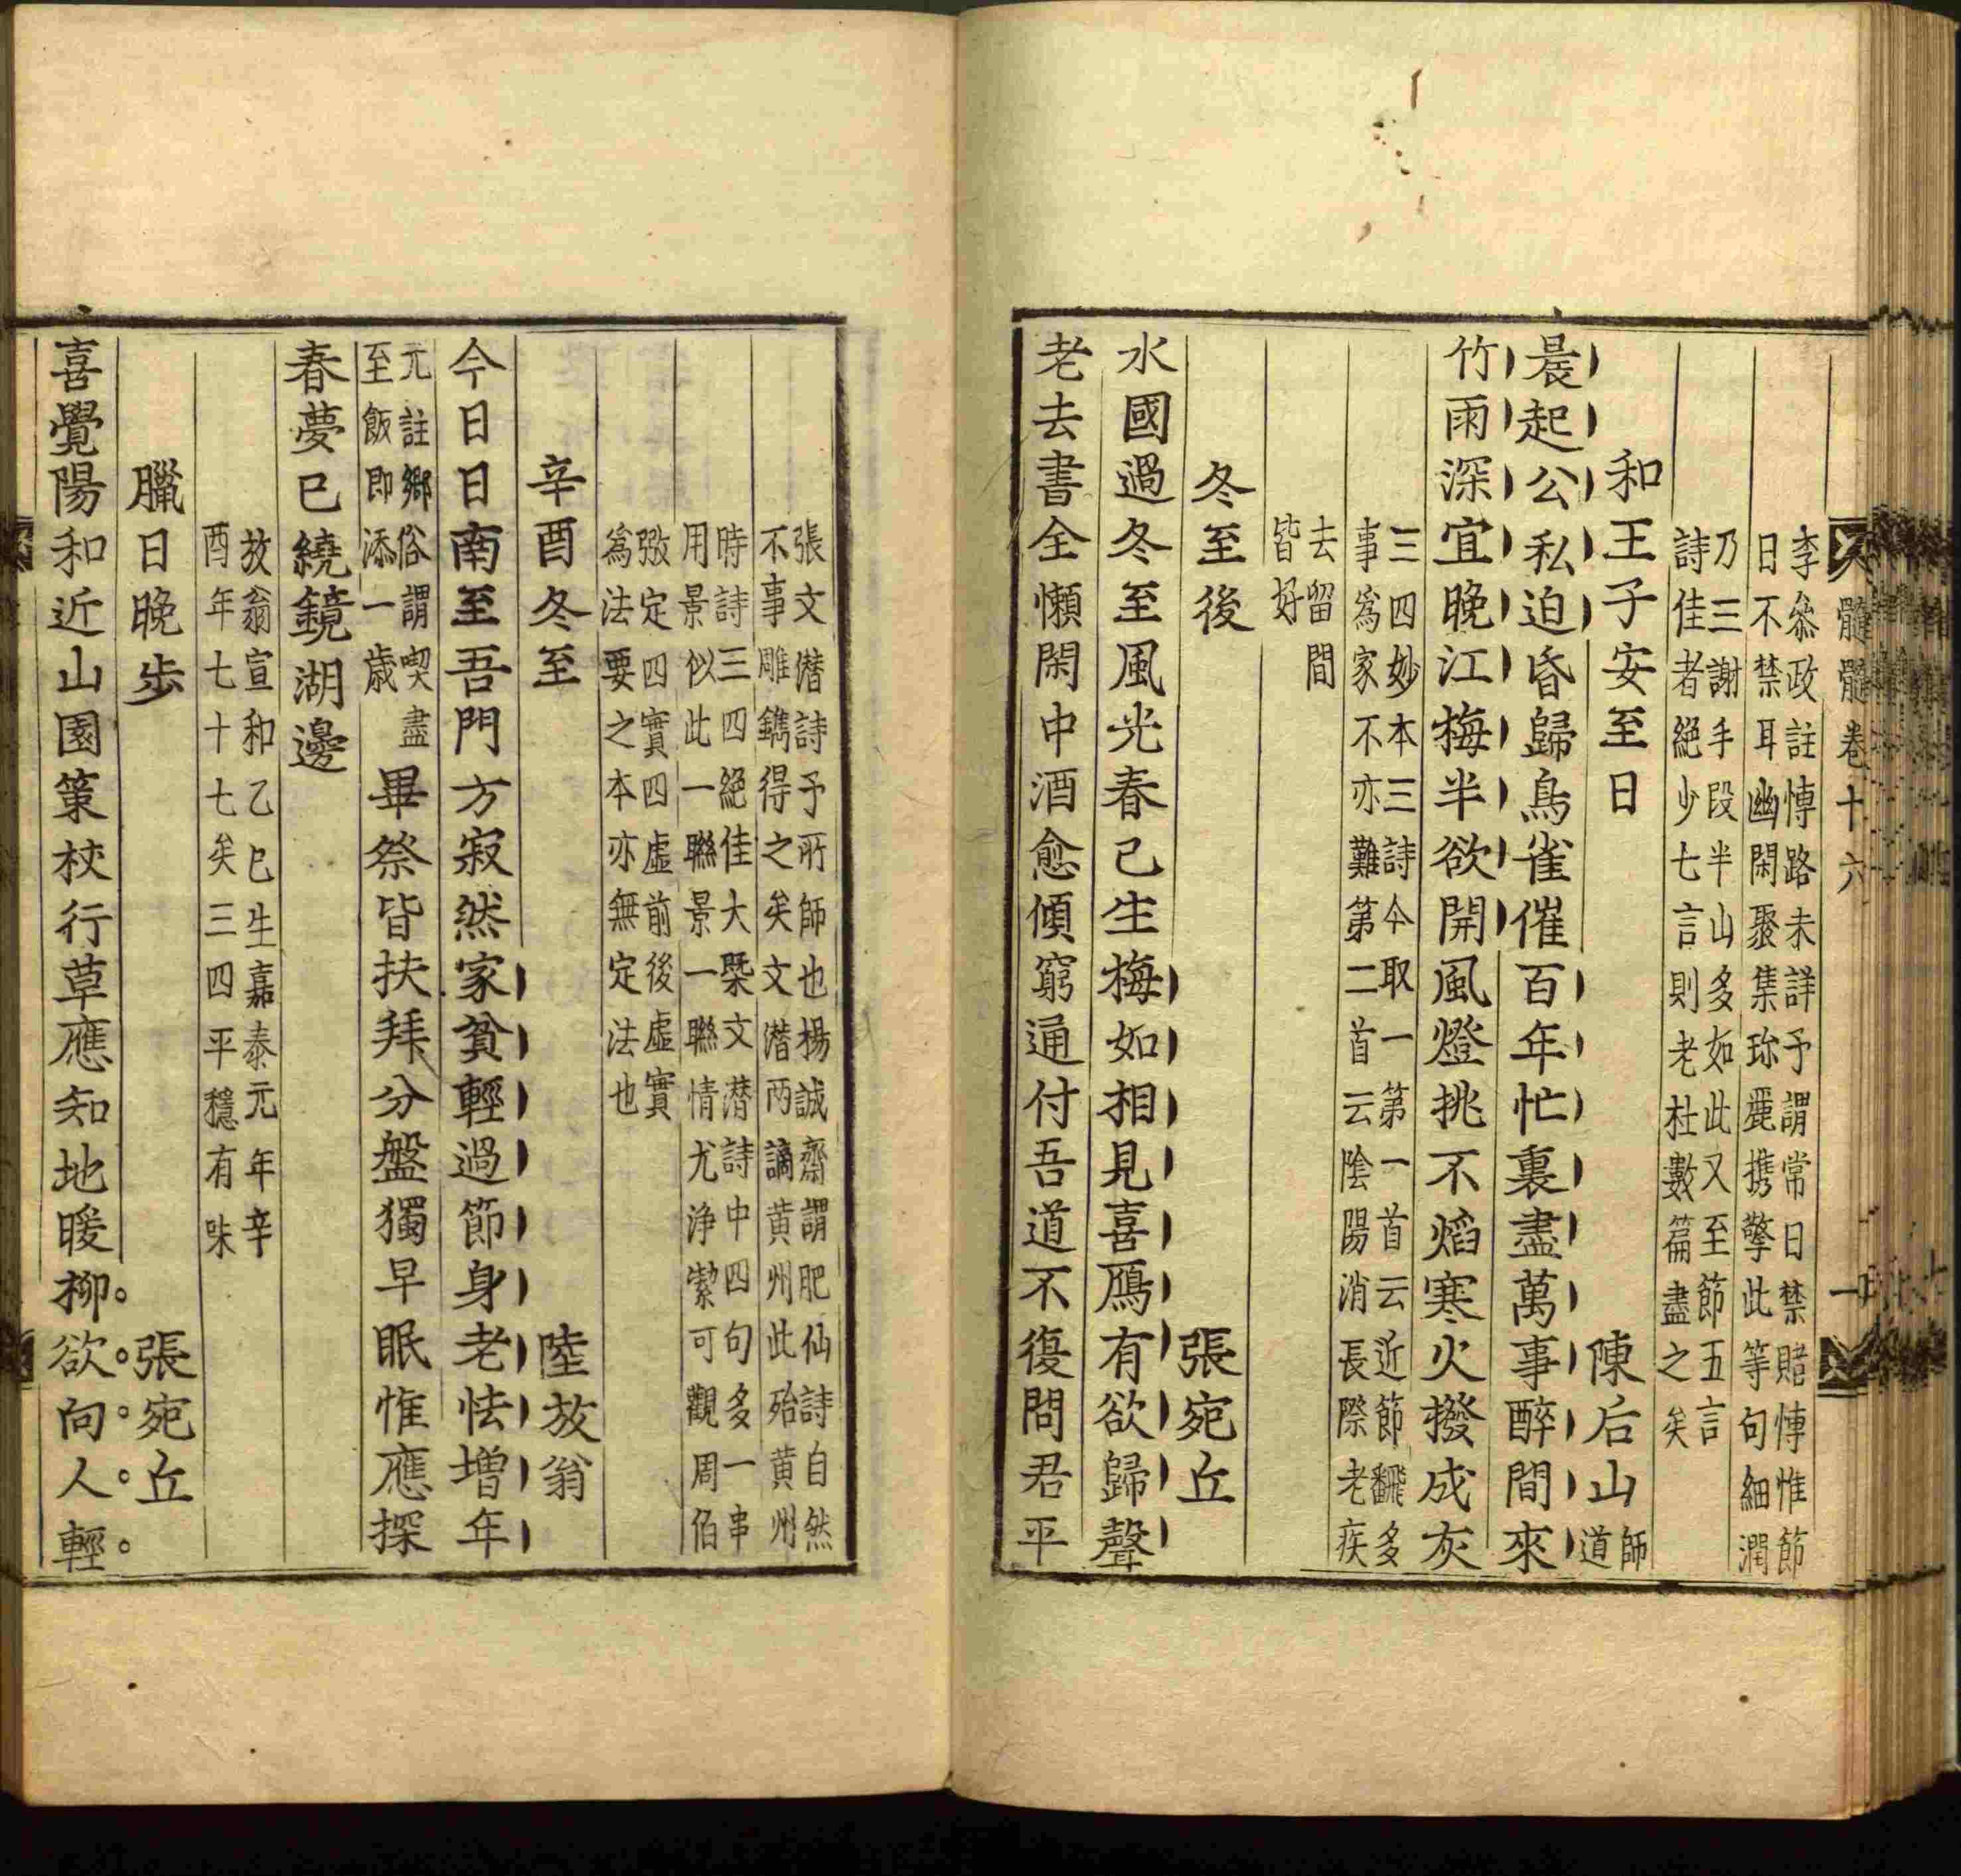 髓髓卷十六
李叅政註慱路未詳予謂常日禁賭慱惟節
日不禁耳幽閑聚集珎麗携擎此等句細潤
乃三謝手段半山多如此又至節五言
詩佳者絕少七言則老杜數篇盡之矣
和王子安至日 陳后山師道
晨起公私迫昏歸鳥雀催百年忙裏盡萬事醉間來
竹雨深宜晚江梅半欲開風燈挑不熖寒火撥成灰
三四妙本三詩今取一第一首云近節翻多
事爲家不亦難第二首云陰陽消長際老疾
去留間
皆好
冬至後 張宛丘
水國過冬至風光春已生梅如相見喜鴈有欲歸聲
老去書全懶閑中酒愈傾窮通付吾道不復問君平
張文僣詩予所師也楊誠齋謂肥仙詩自然
不事雕鐫得之矣文潜两謫黄州此殆黄州
時詩三四絕佳大槩文潜詩中四句多一串
用景似此一聯景一聯情尤浄潔可觀周伯
弜定四實四虛前後虛實
爲法要之本亦無定法也
辛酉冬至 陸放翁
今日日南至吾門方寂然家貧輕過節身老怯增年
元註鄉俗謂喫盡
至飯即添一歲
畢祭皆扶拜分盤獨早眠惟應探
春夢已繞鏡湖邊
放翁宣和乙巳生嘉泰元年辛
酉年七十七矣三四平穩有味
臘日晚步 張宛丘
喜覺陽和近山園策校行草應知地暖柳欲向人輕